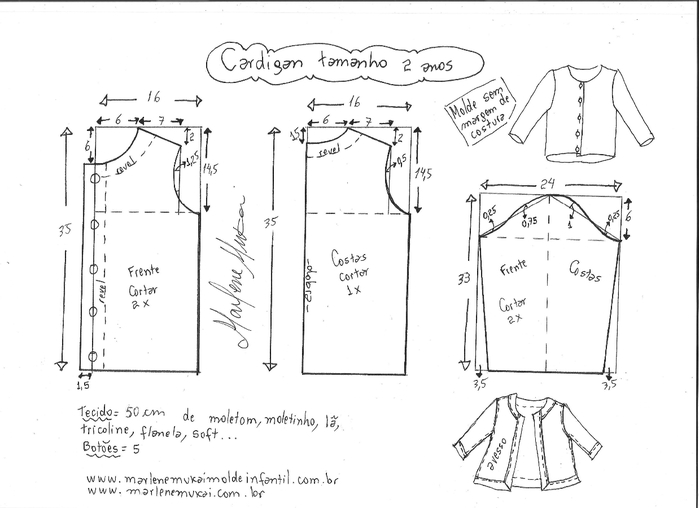 Cardigan tamanho 2 anos
Molde sem
margem de
costura
16
6
7
2
6
revel
1,25
14,5
35
revel
Frente
Cortar
2x
1,5
Marlene Mukai
16
6
7
1,5
2
revel
0,5
14,5
35
Costas
Cortar
1x
dobra
24
0,25
0,75
1
0,25
6
33
Frente
Costas
Cortar
2x
3,5
3,5
Tecido= 50 cm de moletom, moletinho, lã,
tricoline, flanela, soft...
Botões= 5
www.marlenemukaimoldeinfantil.com.br
www.marlenemukai.com.br
avesso